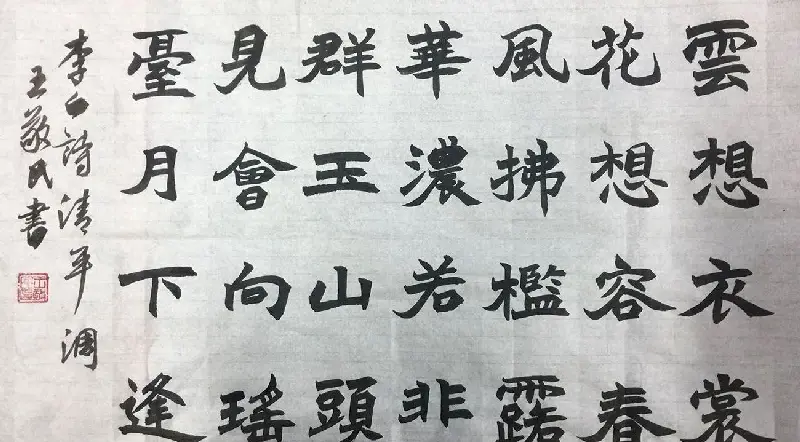 雲想衣裳
花想容春
風拂檻露
華濃若非
群玉山頭
見會向瑤
臺月下逢
李白詩清平調
王敬民書